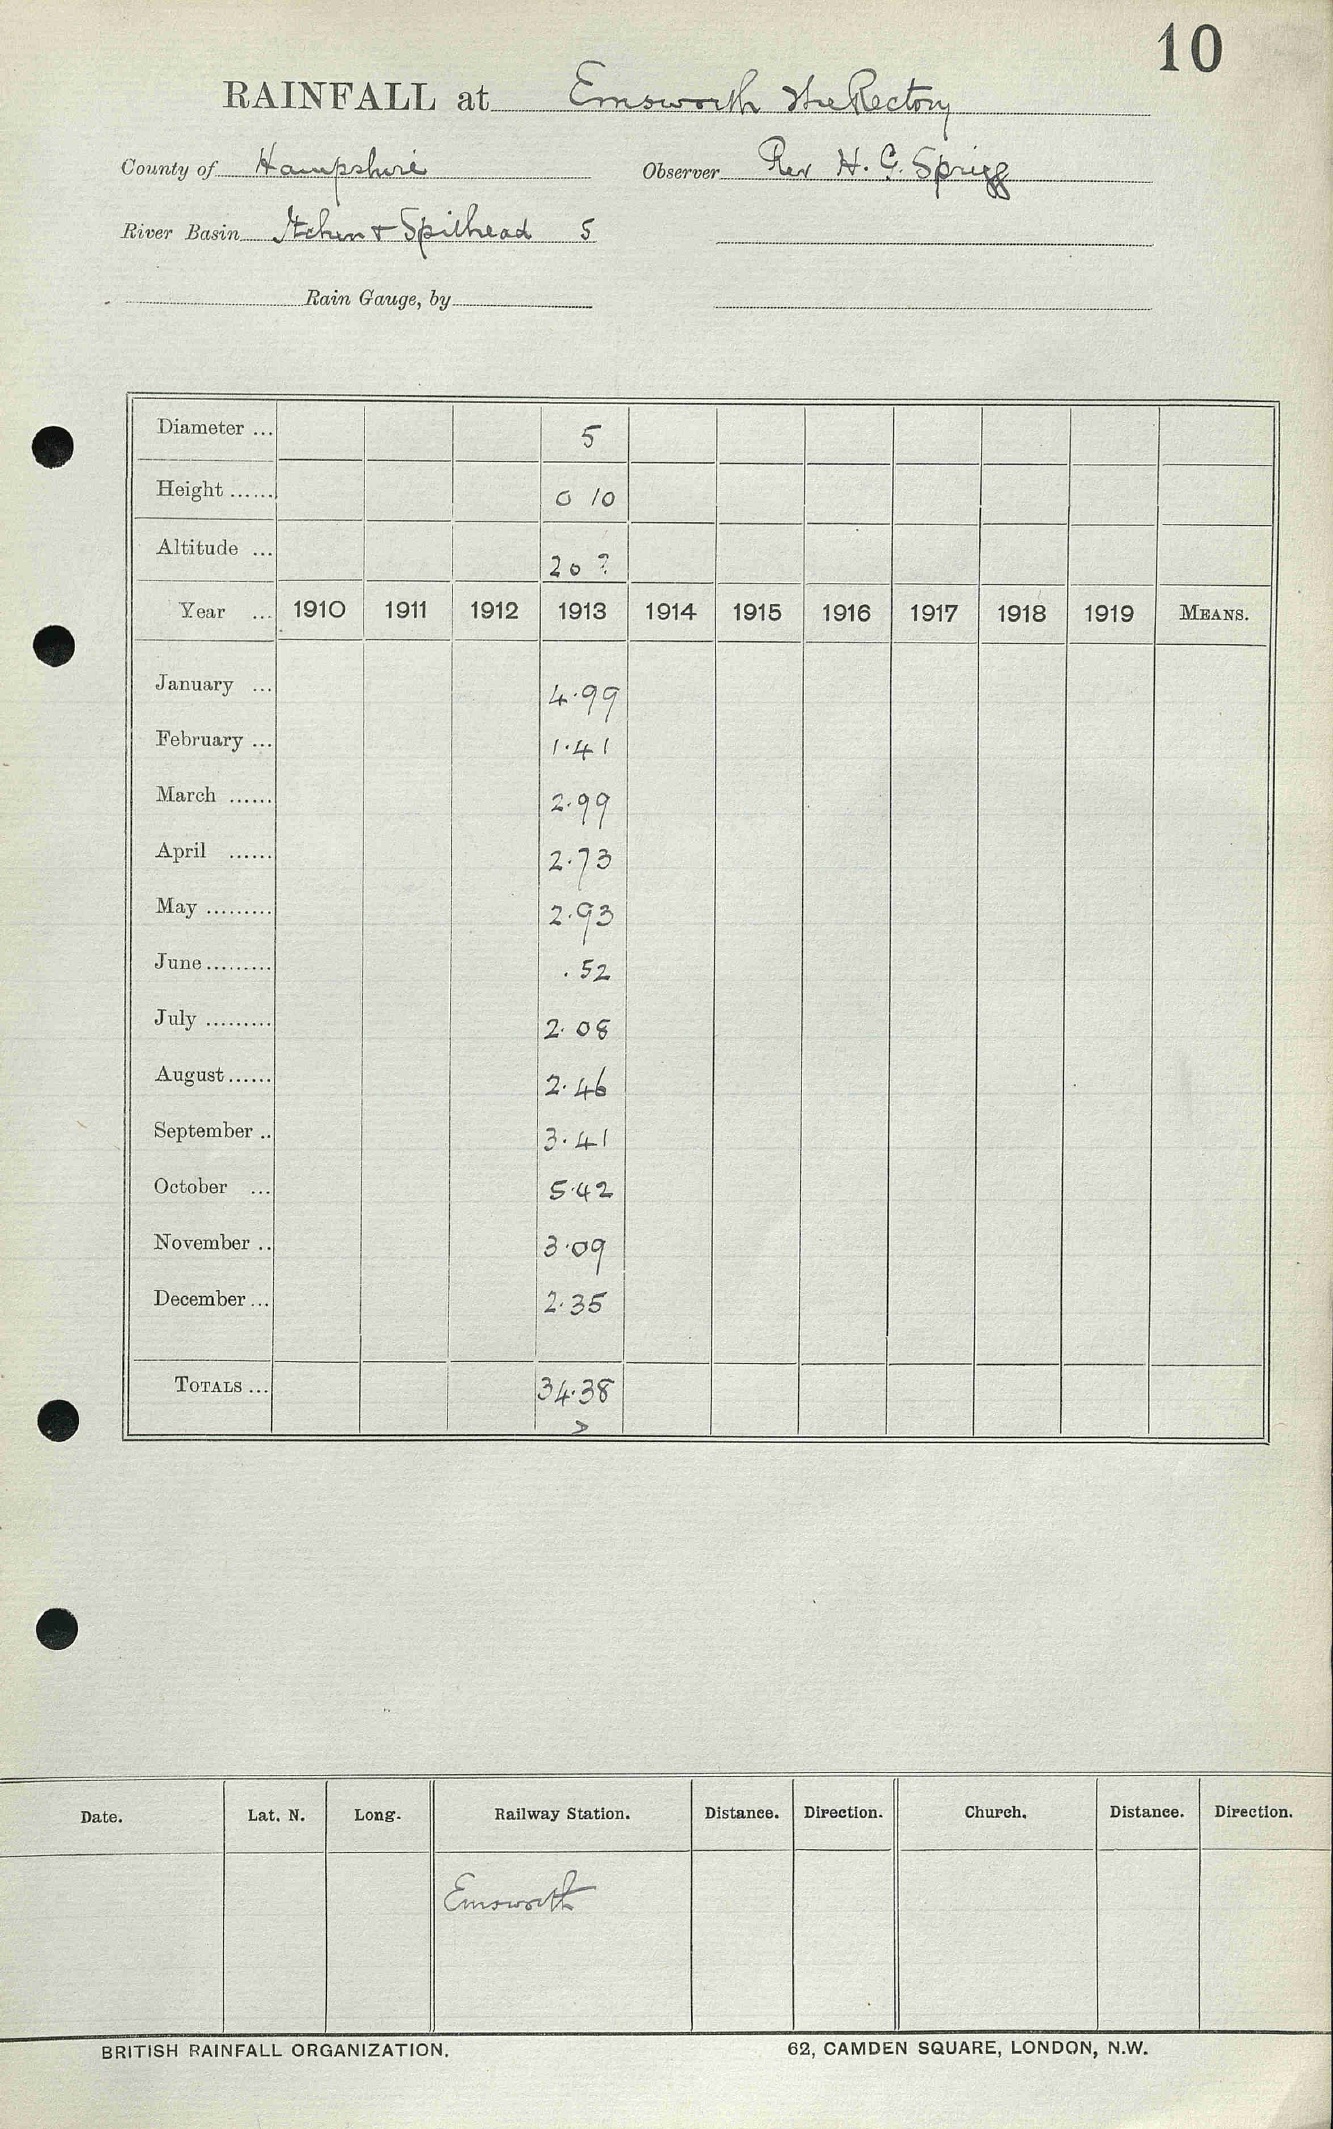 10
RAINFALL at Emsworth The Rectory
County of Hampshire Observer Rev H. G. Sprigg
River Basin Itchen + Spithead 5
Rain Gauge, by
Diameter ... 5
Height ...... 0 10
Altitude ... 20 ?
Year ... 1910 1911 1912 1913 1914 1915 1916 1917 1918 1919 MEANS.
January ... 4.99
February ... 1.41
March ...... 2.99
April ...... 2.73
May ......... 2.93
June ......... .52
July ......... 2.08
August ...... 2.46
September .. 3.41
October ... 5.42
November .. 3.09
December ... 2.35
TOTALS ... 34.38
>
Date. Lat. N. Long. Railway Station. Distance. Direction. Church. Distance. Direction.
Emsworth
BRITISH RAINFALL ORGANIZATION. 62, CAMDEN SQUARE, LONDON, N.W.